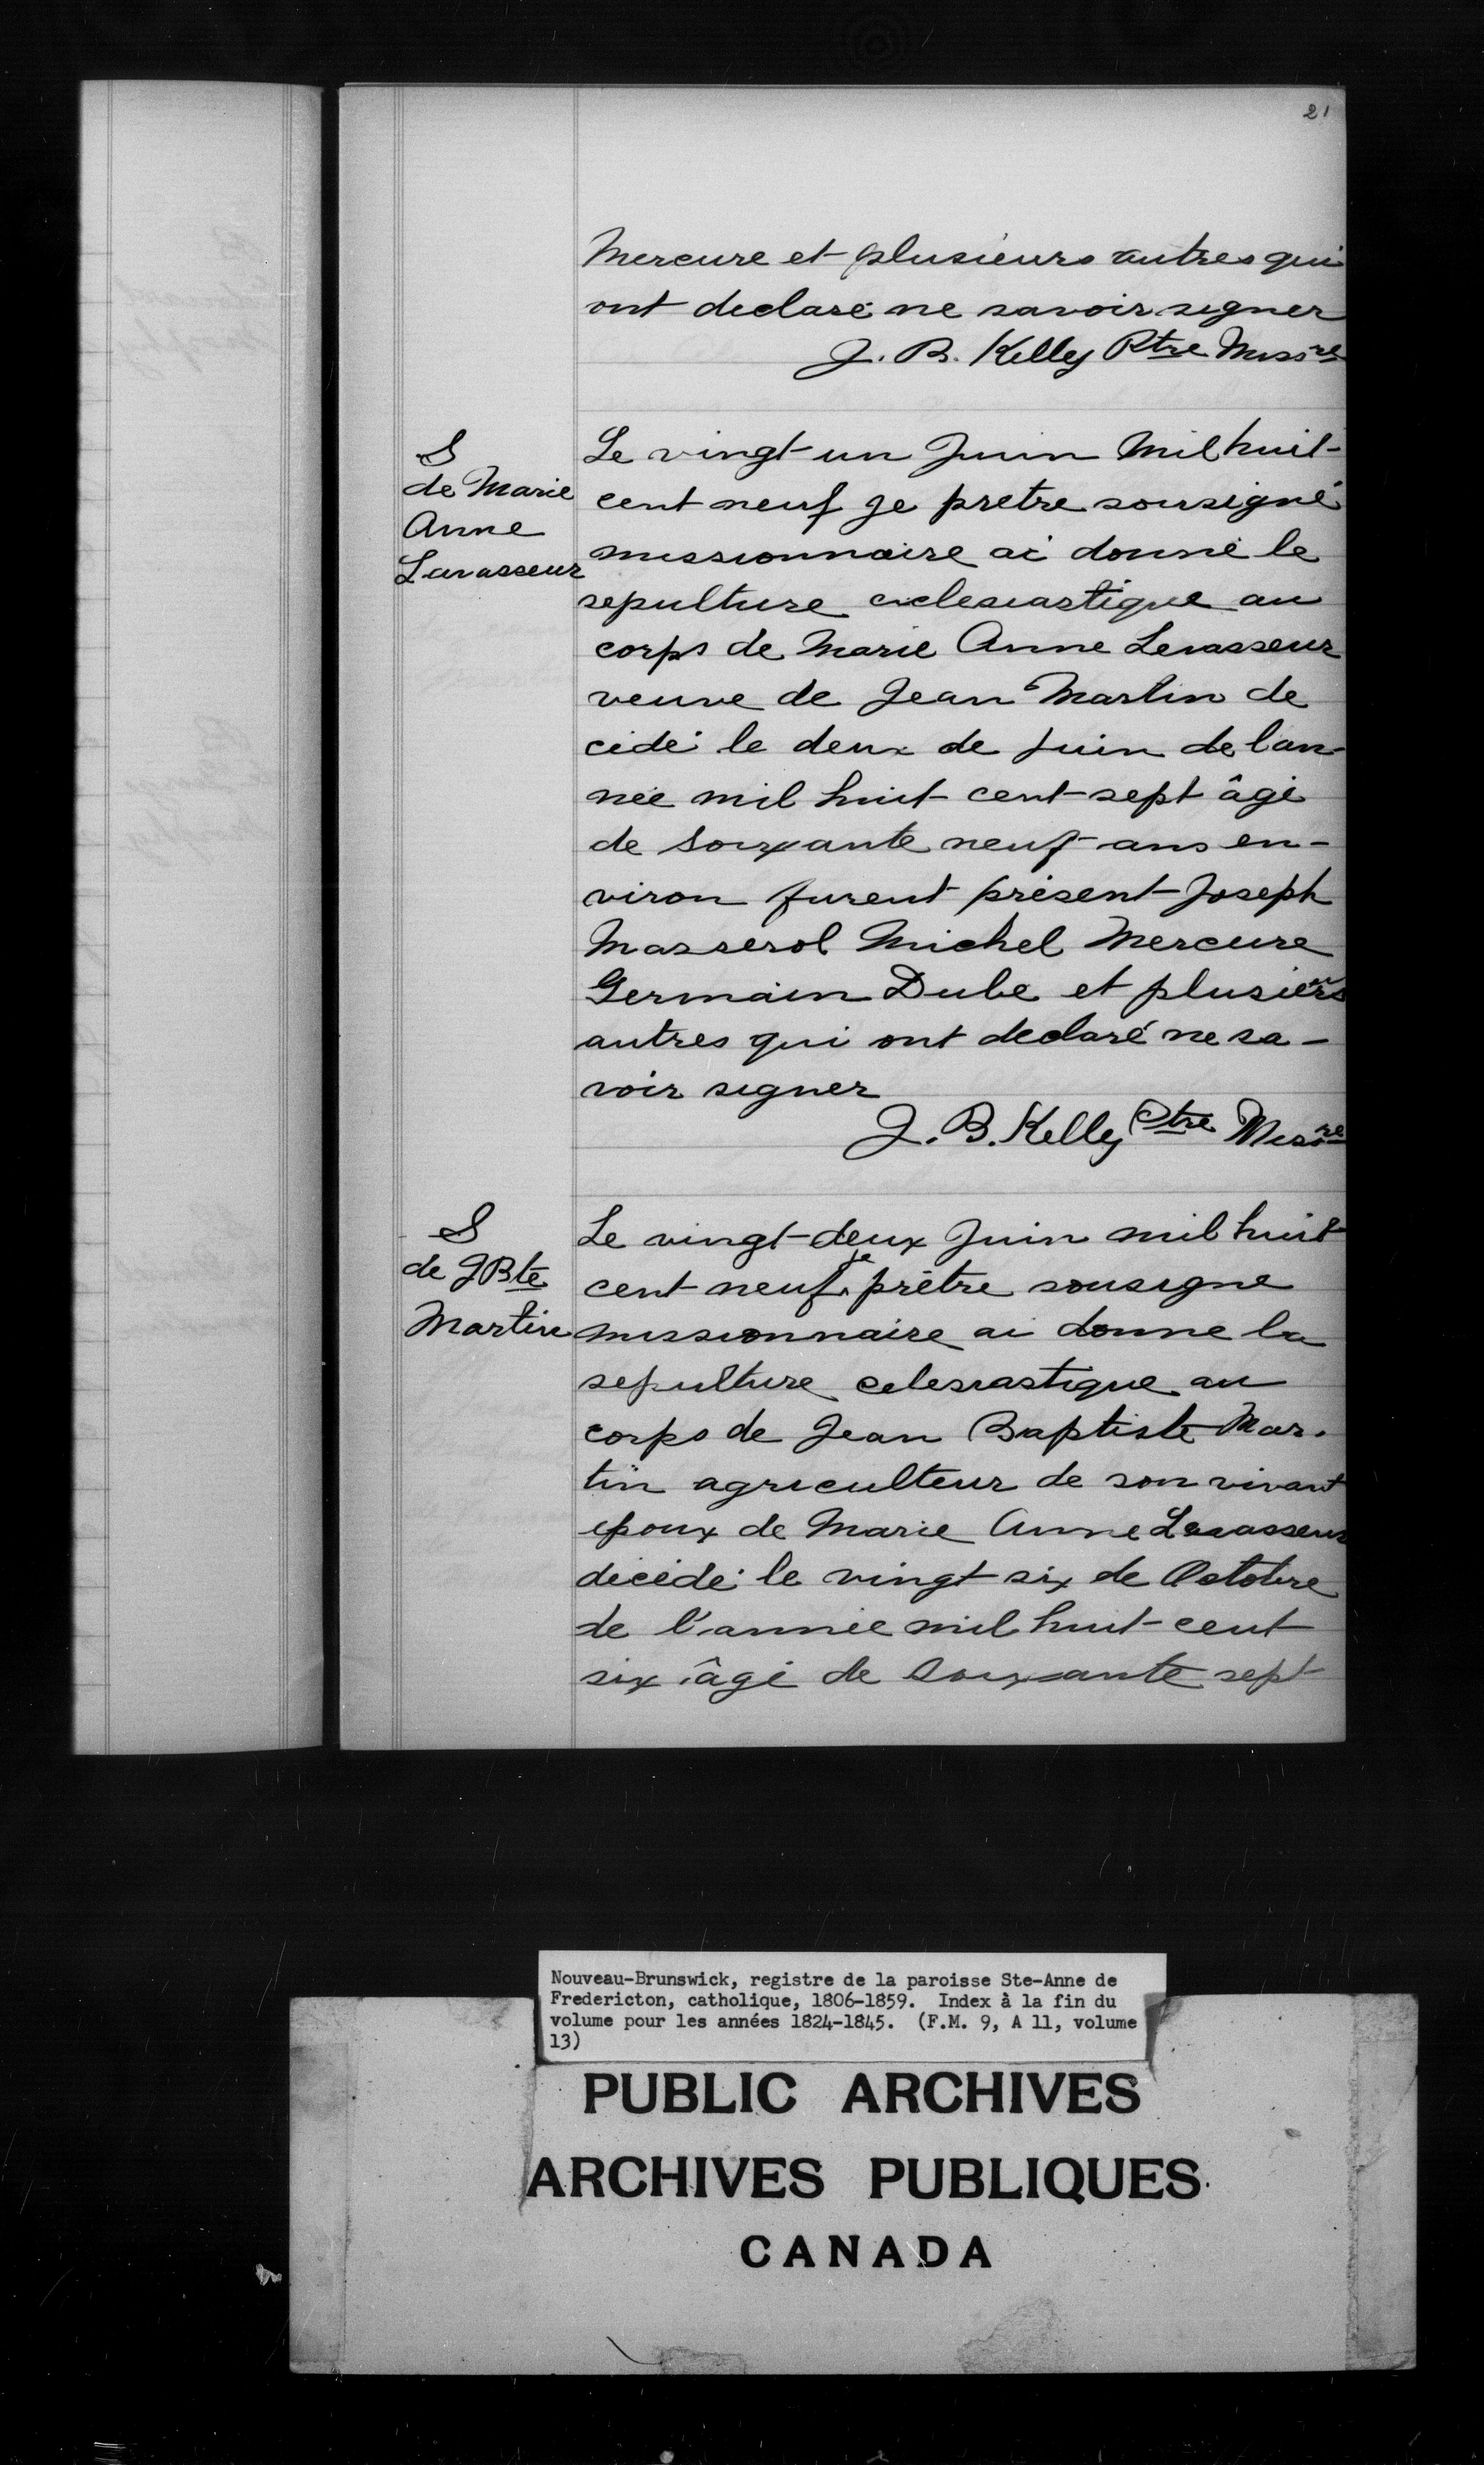 21
Mercure et plusieurs autres qui
ont declaré ne savoir signer
J. B. Kelly Ptre Missre
S
de Marie
Anne
Lavasseur
Le vingt-un Juin Mil huit-
cent neuf je pretre sousigné
missionnaire ai donné le
sepulture eclesiastique au
corps de Marie Anne Levasseur
veuve de Jean Martin de
cidé le deux de Juin de l'an-
née mil huit cent-sept âgé
de soixante neuf ans en-
viron furent présent Joseph
Masserol Michel Mercure
Germain Dube et plusieurs
autres qui ont declaré ne sa-
voir signer
J. B. Kelly Ptre Missre
S
de JBte
Martin
Le vingt-deux Juin mil huit
cent neuf je prêtre sousigne
missionnaire ai donne la
sepulture eclesiastique au
corps de Jean Baptiste Mar-
tin agriculteur de son vivant
epoux de Marie Anne Lavasseur
décédé le vingt six de Octobre
de l'année mil huit-cent
six âgé de soixante sept
Nouveau-Brunswick, registre de la paroisse Ste-Anne de
Fredericton, catholique, 1806-1859. Index à la fin du
volume pour les années 1824-1845. (F.M. 9, A 11, volume
13)
PUBLIC ARCHIVES
ARCHIVES PUBLIQUES
CANADA